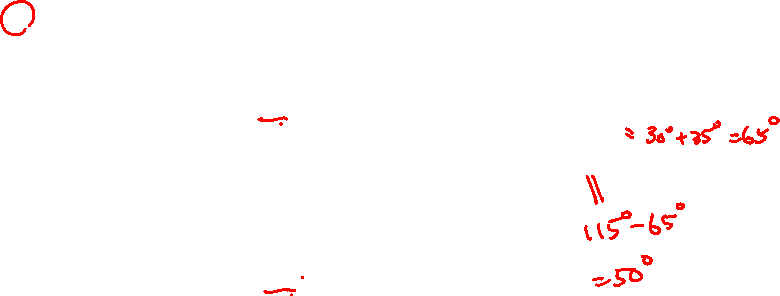 = 30° + 35° = 65°
||
115° - 65°
= 50°